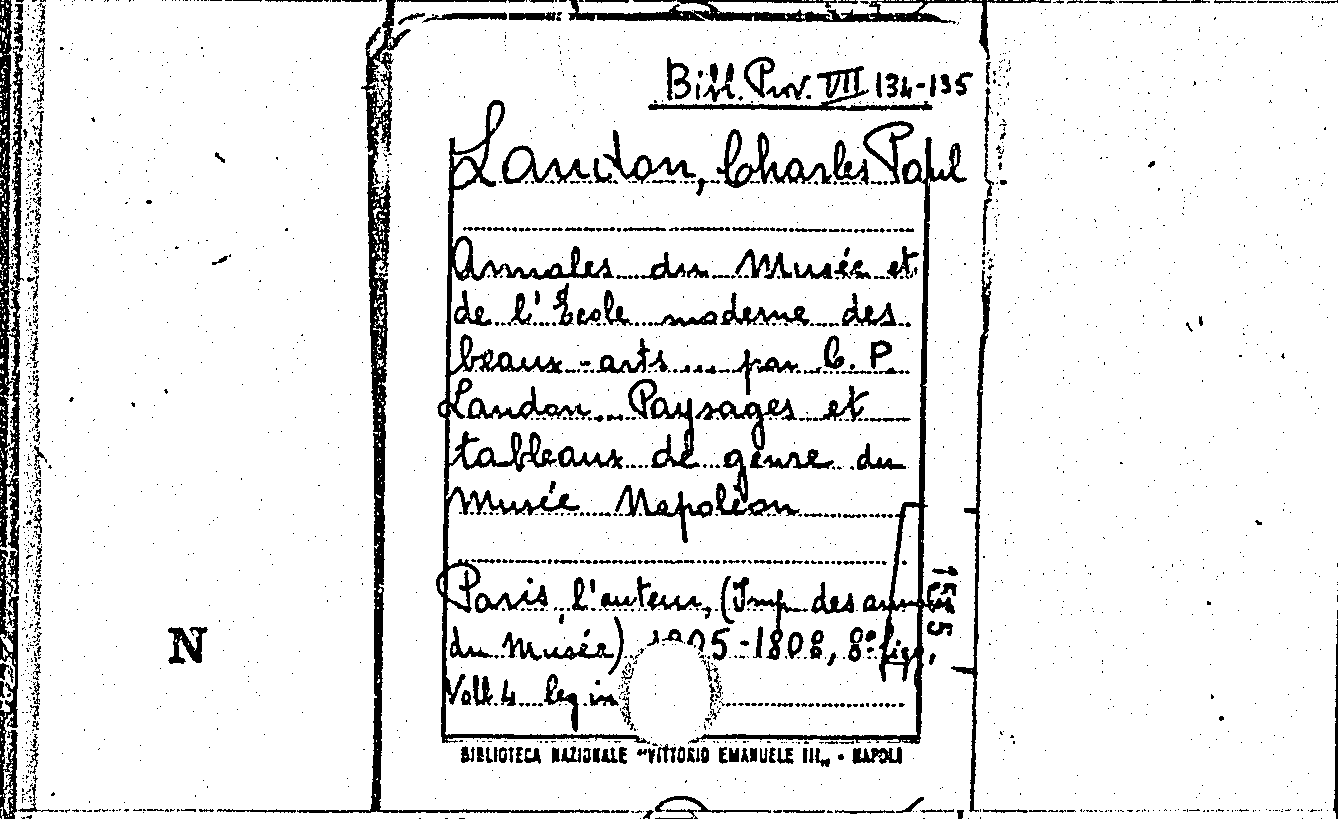 Bibl. Prov. VII 134-135
Landon, Charles Paul
Annales du Musée et
de l'École moderne des
beaux-arts... par C. P.
Landon... Paysages et
tableaux de genre du
Musée Napoléon
Paris, l'auteur, (Imp. des annales
du Musée) 1805-1808, 8° figg.,
Voll 4 leg in
N
BIBLIOTECA NAZIONALE "VITTORIO EMANUELE III„ - NAPOLI